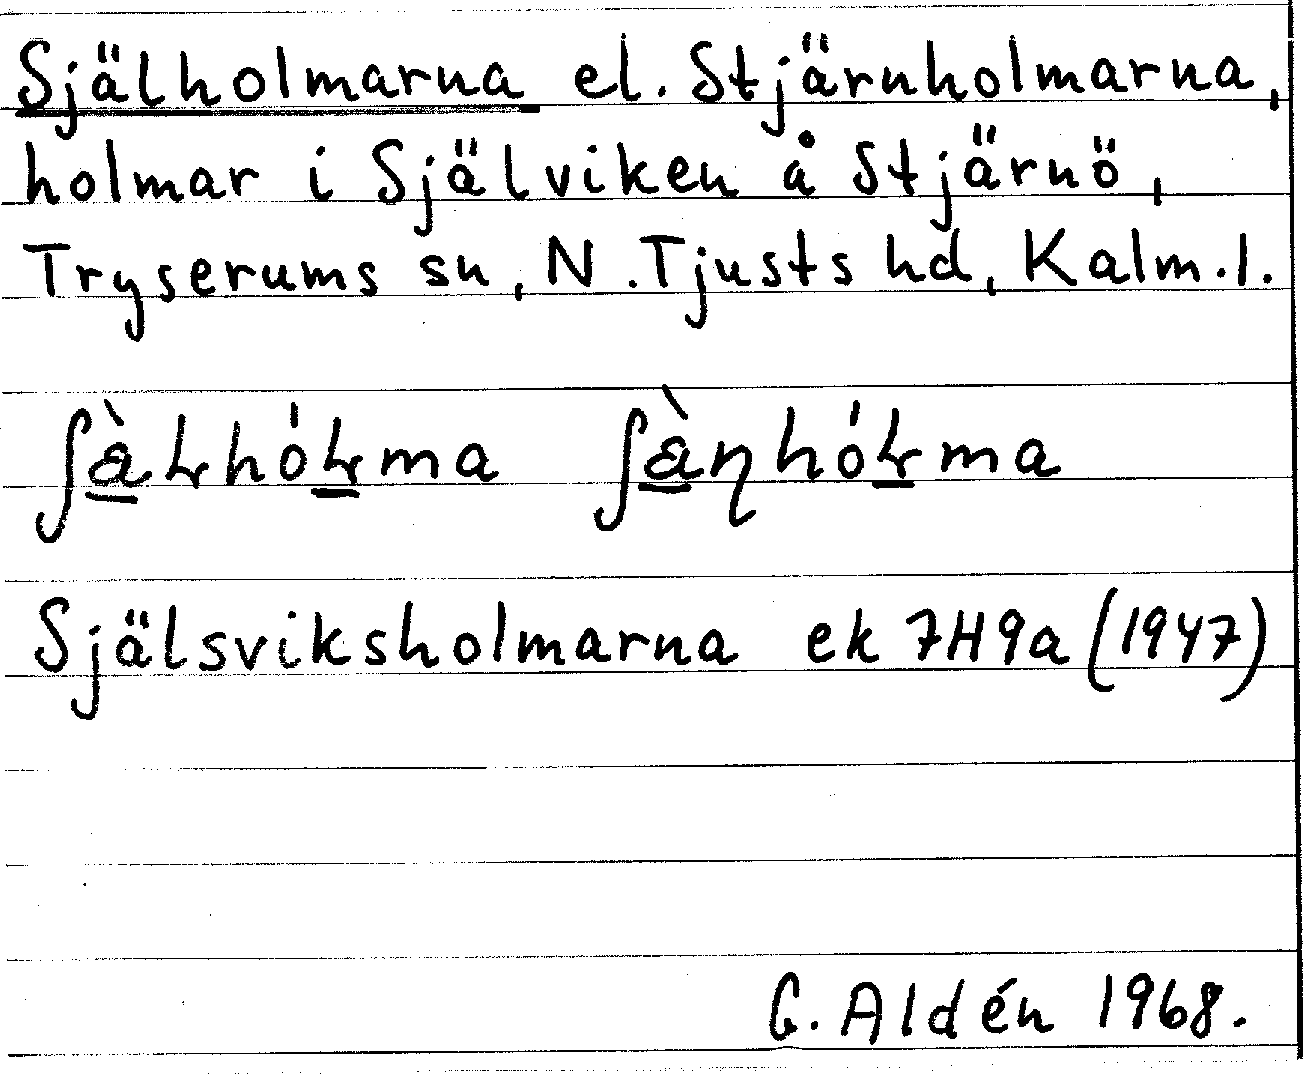 Själholmarna el. Stjärnholmarna,
holmar i Själviken å Stjärnö,
Tryserums sn, N. Tjusts hd, Kalm. l.
Själsviksholmarna ek 7H9a (1947)
G. Aldén 1968.